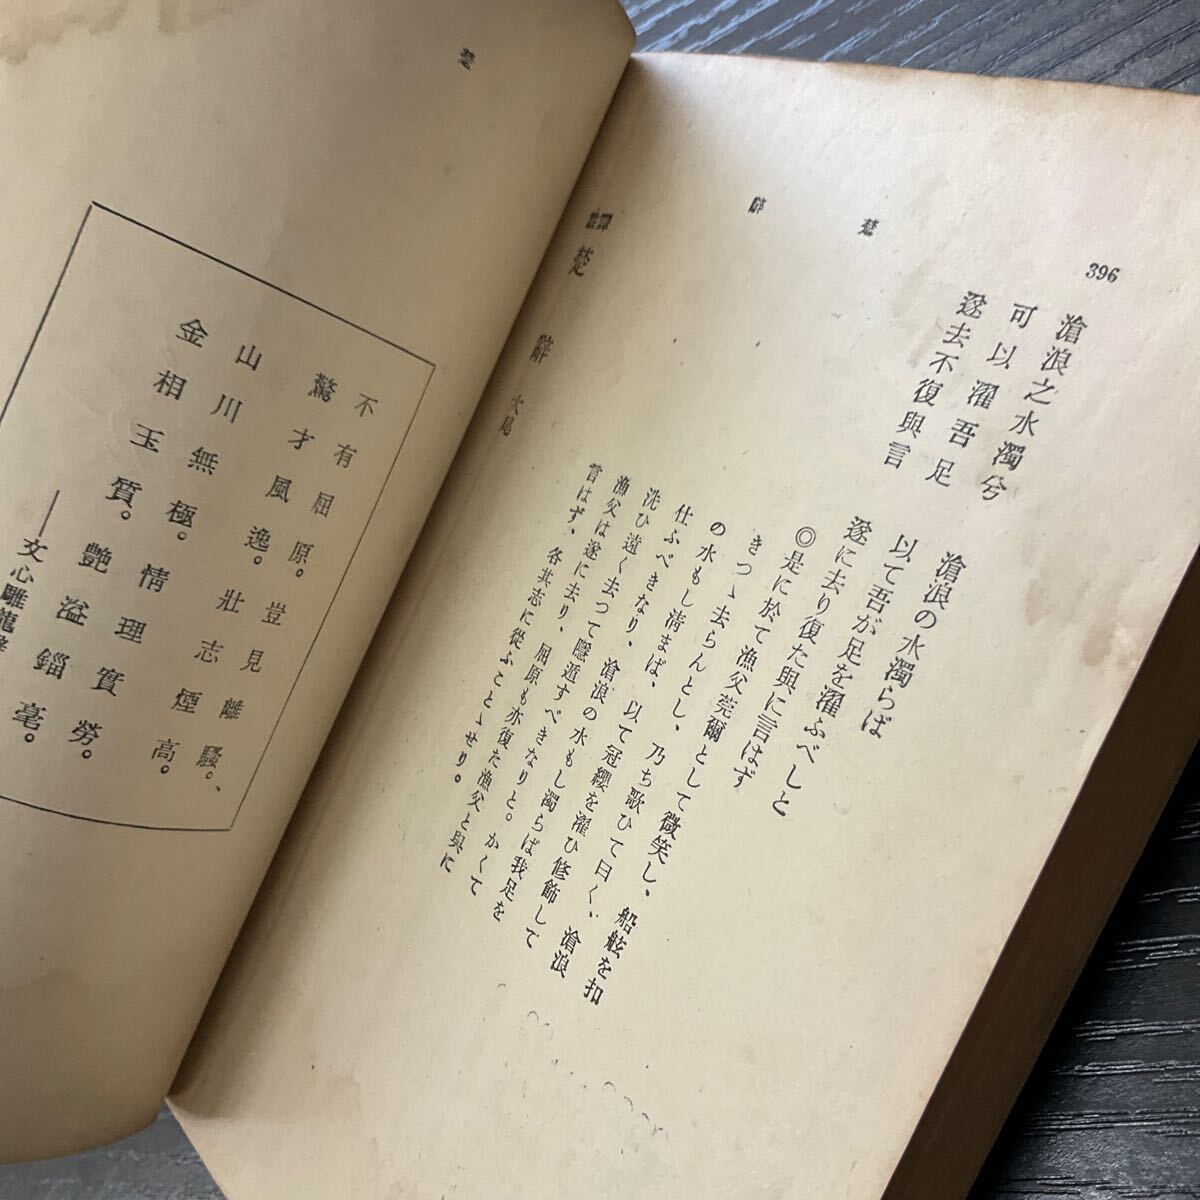 396
楚
辭
滄浪之水濁兮
可以濯吾足
遂去不復與言
滄浪の水濁らば
以て吾が足を濯ふべしと
遂に去り復た與に言はず
◎是に於て漁父莞爾として微笑し、船舷を扣
きつゝ去らんとし、乃ち歌ひて曰く、滄浪
の水もし淸まば、以て冠纓を濯ひ修飾して
仕ふべきなり、滄浪の水もし濁らば我足を
洗ひ遠く去つて隱遁すべきなりと。かくて
漁父は遂に去り、屈原も亦復た漁父と與に
言はず、各其志に從ふことゝせり。
楚辭 大尾
楚
不有屈原。豈見離騷。
驚才風逸。壯志煙高。
山川無極。情理實勞。
金相玉質。艷溢錙毫。
——文心雕龍